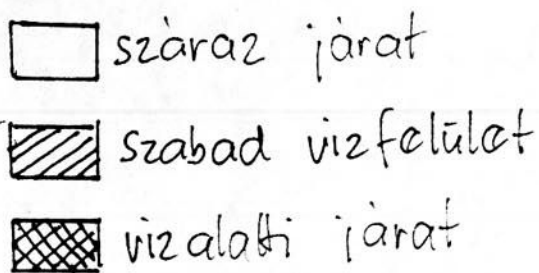 száraz járat
szabad vizfelület
vizalatti járat